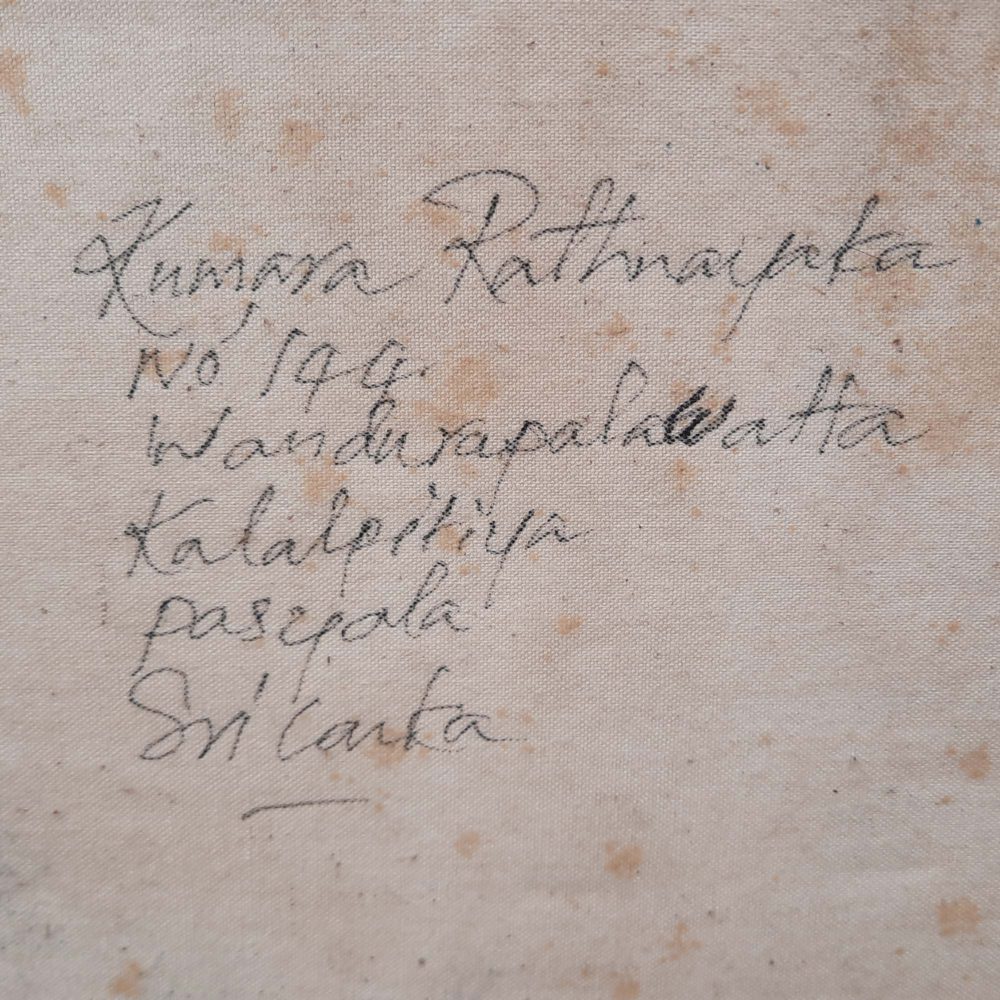 Kumara Rathnayaka
No 144.
Wandurapalawatta
Kalalpitiya
pasyala
Sri Lanka